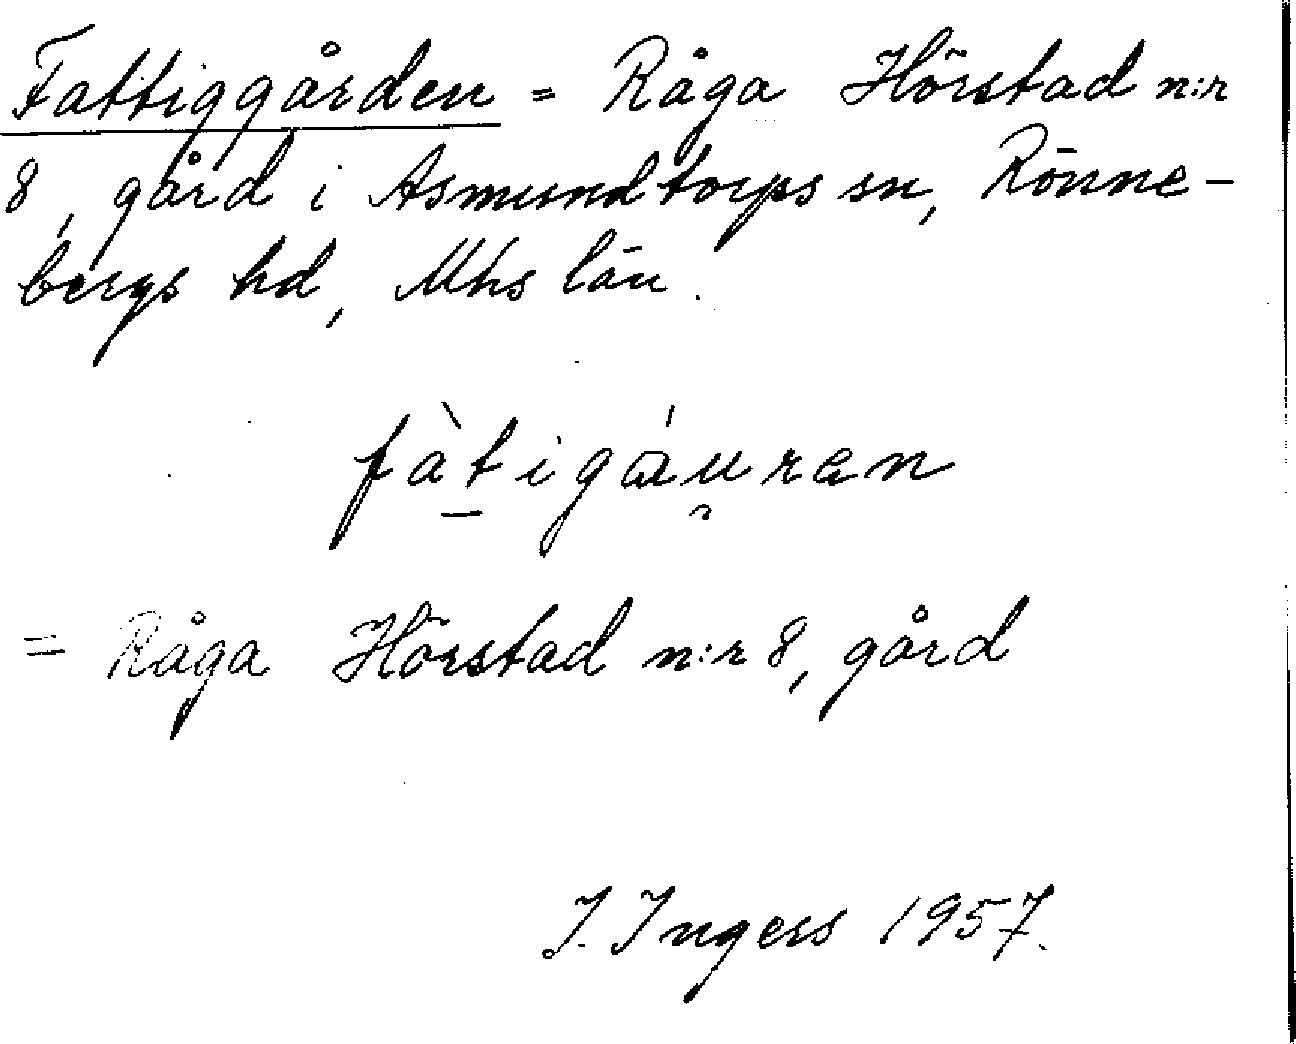 Fattiggården = Råga Hörstad n:r
8, gård i Asmundtorps sn, Rönne-
bergs hd, Mhs län.
fàt̲igáu̯ran
= Råga Hörstad n:r 8, gård
I. Ingers 1957.